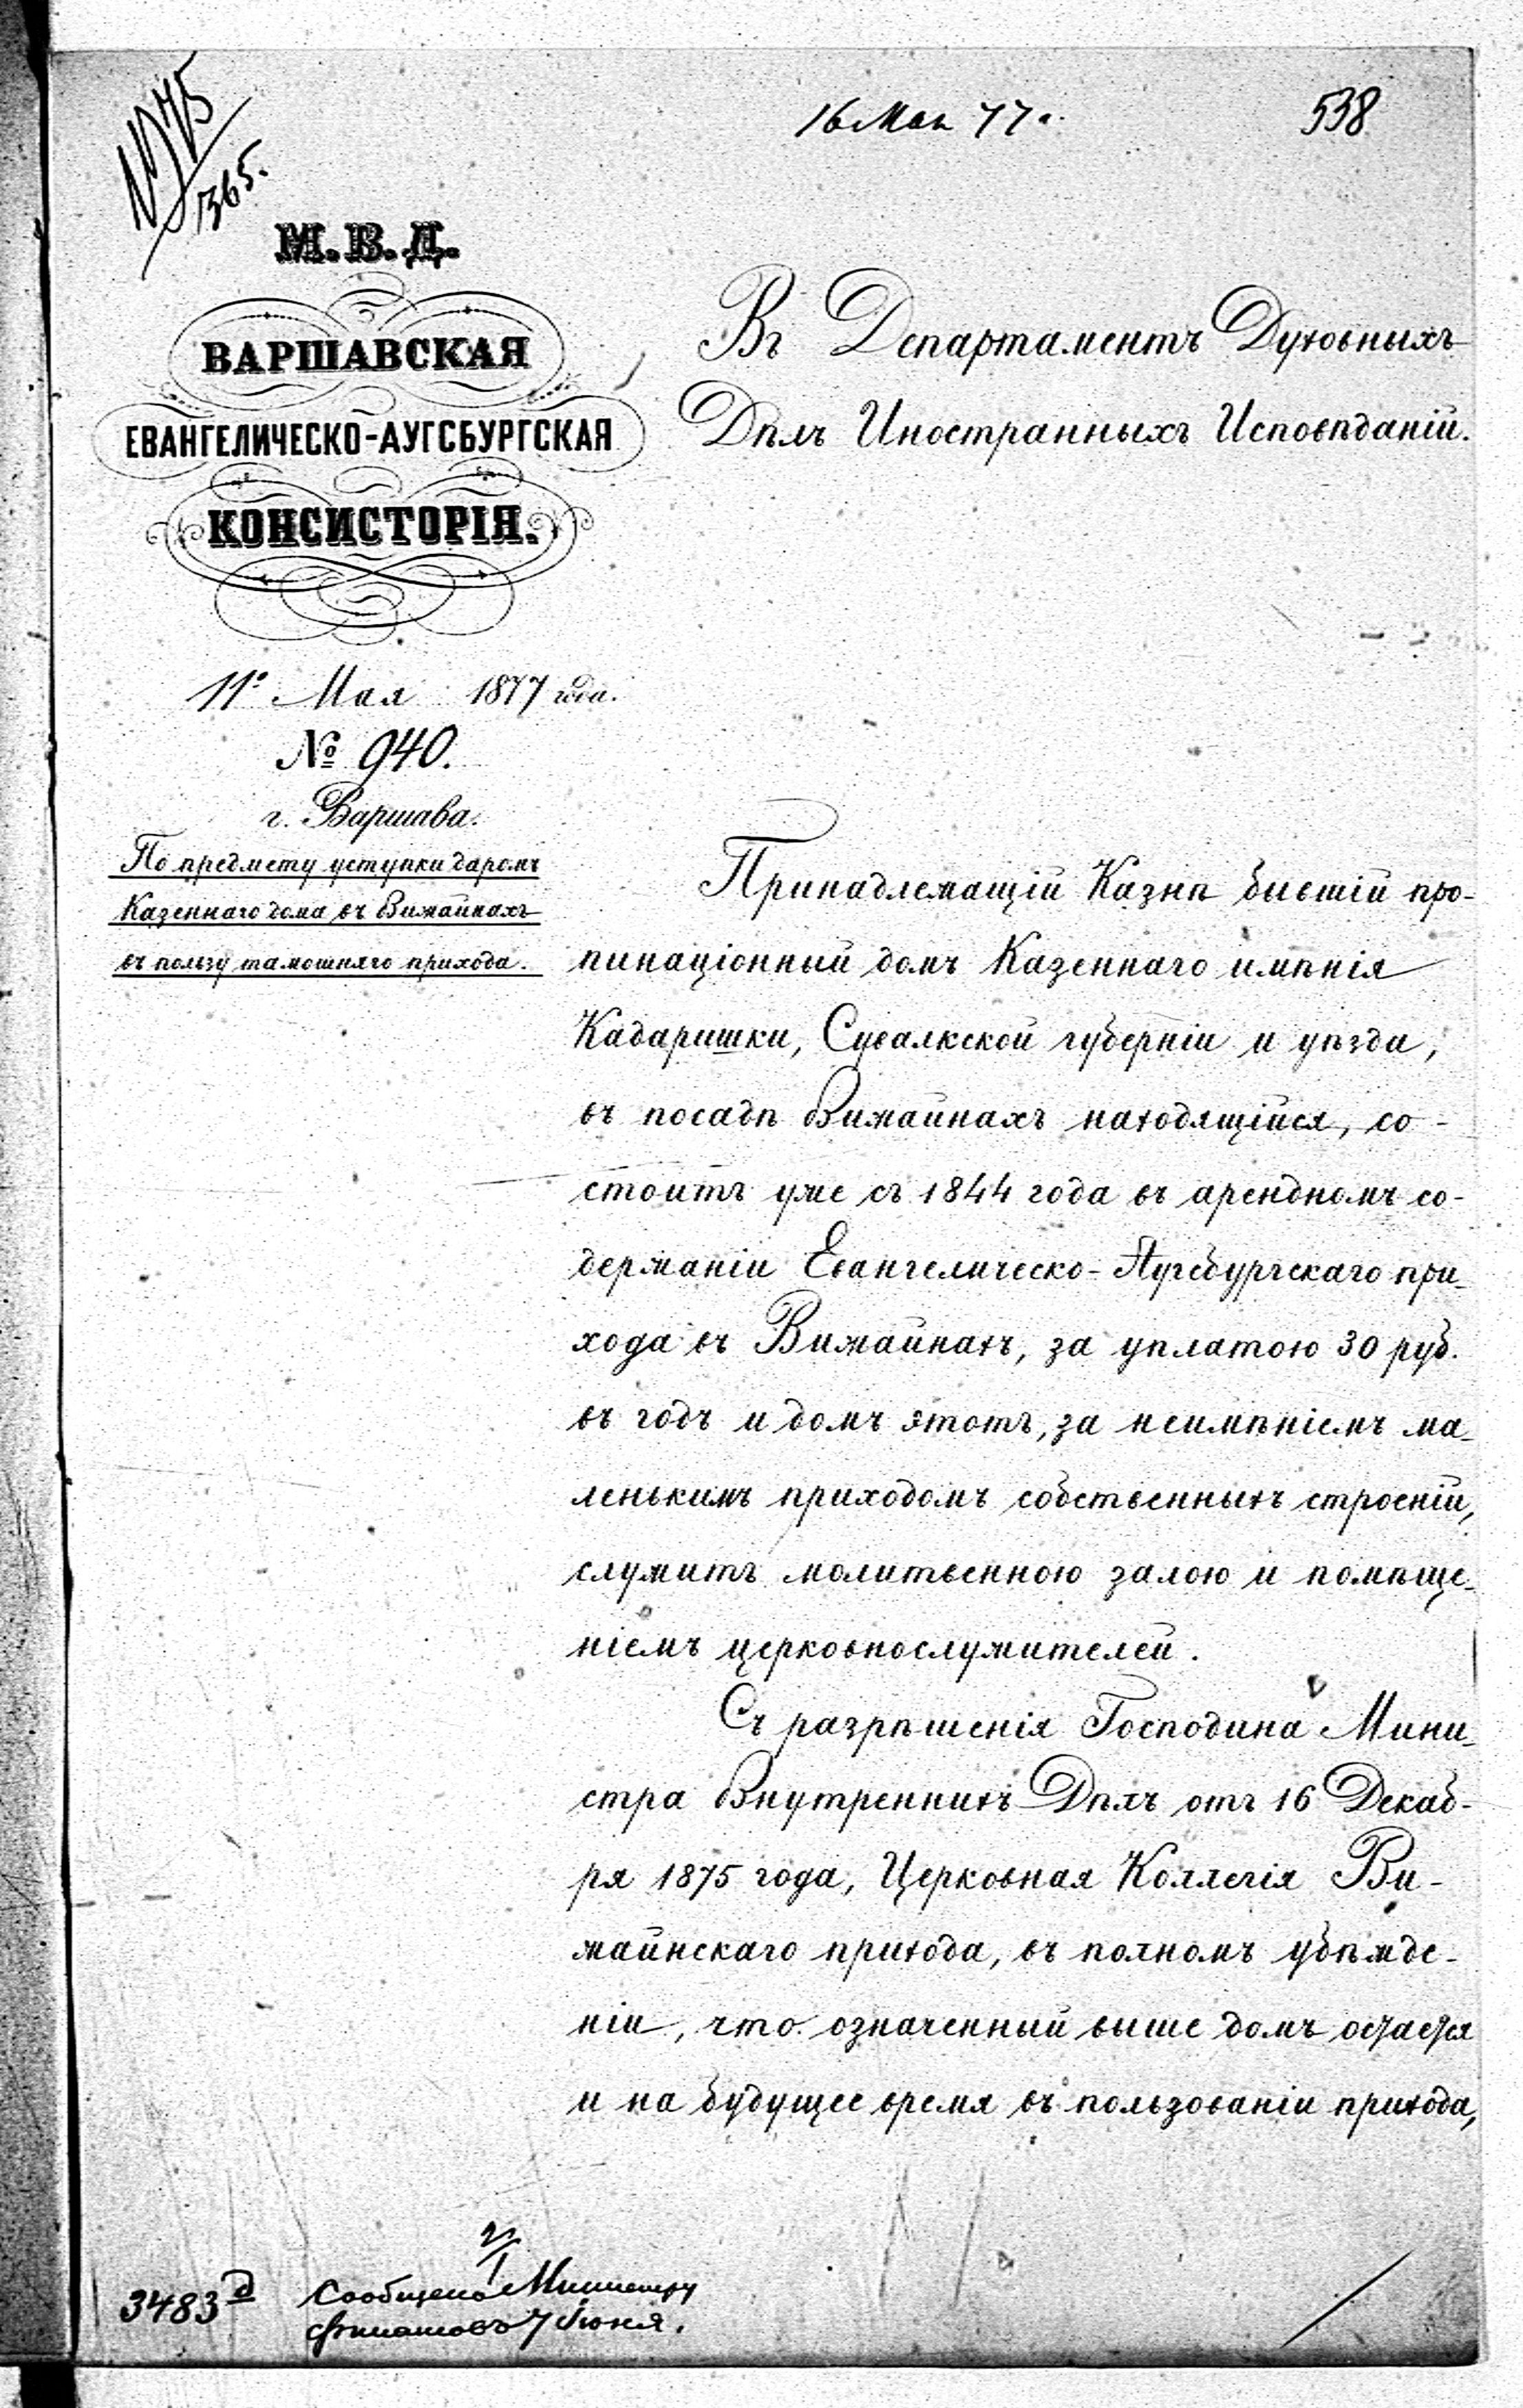 № 75/1365.
16 Мая 77 г.
538
М.В.Д.
ВАРШАВСКАЯ
ЕВАНГЕЛИЧЕСКО-АУГСБУРГСКАЯ
КОНСИСТОРІЯ.
11 Мая 1877 года.
№ 940.
г. Варшава.
По предмету уступки даромъ
Казеннаго дома въ Вижайнахъ
въ пользу тамошняго прихода.
Въ Департаментъ Духовныхъ
Дѣлъ Иностранныхъ Исповѣданій.
Принадлежащій Казнѣ бывшій про-
пинаціонный домъ Казеннаго имѣнія
Кадаришки, Сувалкской губерніи и уѣзда,
въ посадѣ Вижайнахъ находящійся, со-
стоитъ уже съ 1844 года въ арендномъ со-
держаніи Евангелическо-Аугсбургскаго при-
хода въ Вижайнахъ, за уплатою 30 руб.
въ годъ и домъ этотъ, за неимѣніемъ ма-
ленькимъ приходомъ собственныхъ строеній,
служитъ молитвенною залою и помѣще-
ніемъ церковнослужителей.
Съ разрѣшенія Господина Мини-
стра Внутреннихъ Дѣлъ отъ 16 Декаб-
ря 1875 года, Церковная Коллегія Ви-
жайнскаго прихода, въ полномъ убѣжде-
ніи, что означенный выше домъ остается
и на будущее время въ пользованіи прихода,
3483 д
Сообщено Министру
Финансовъ 7 Іюня.